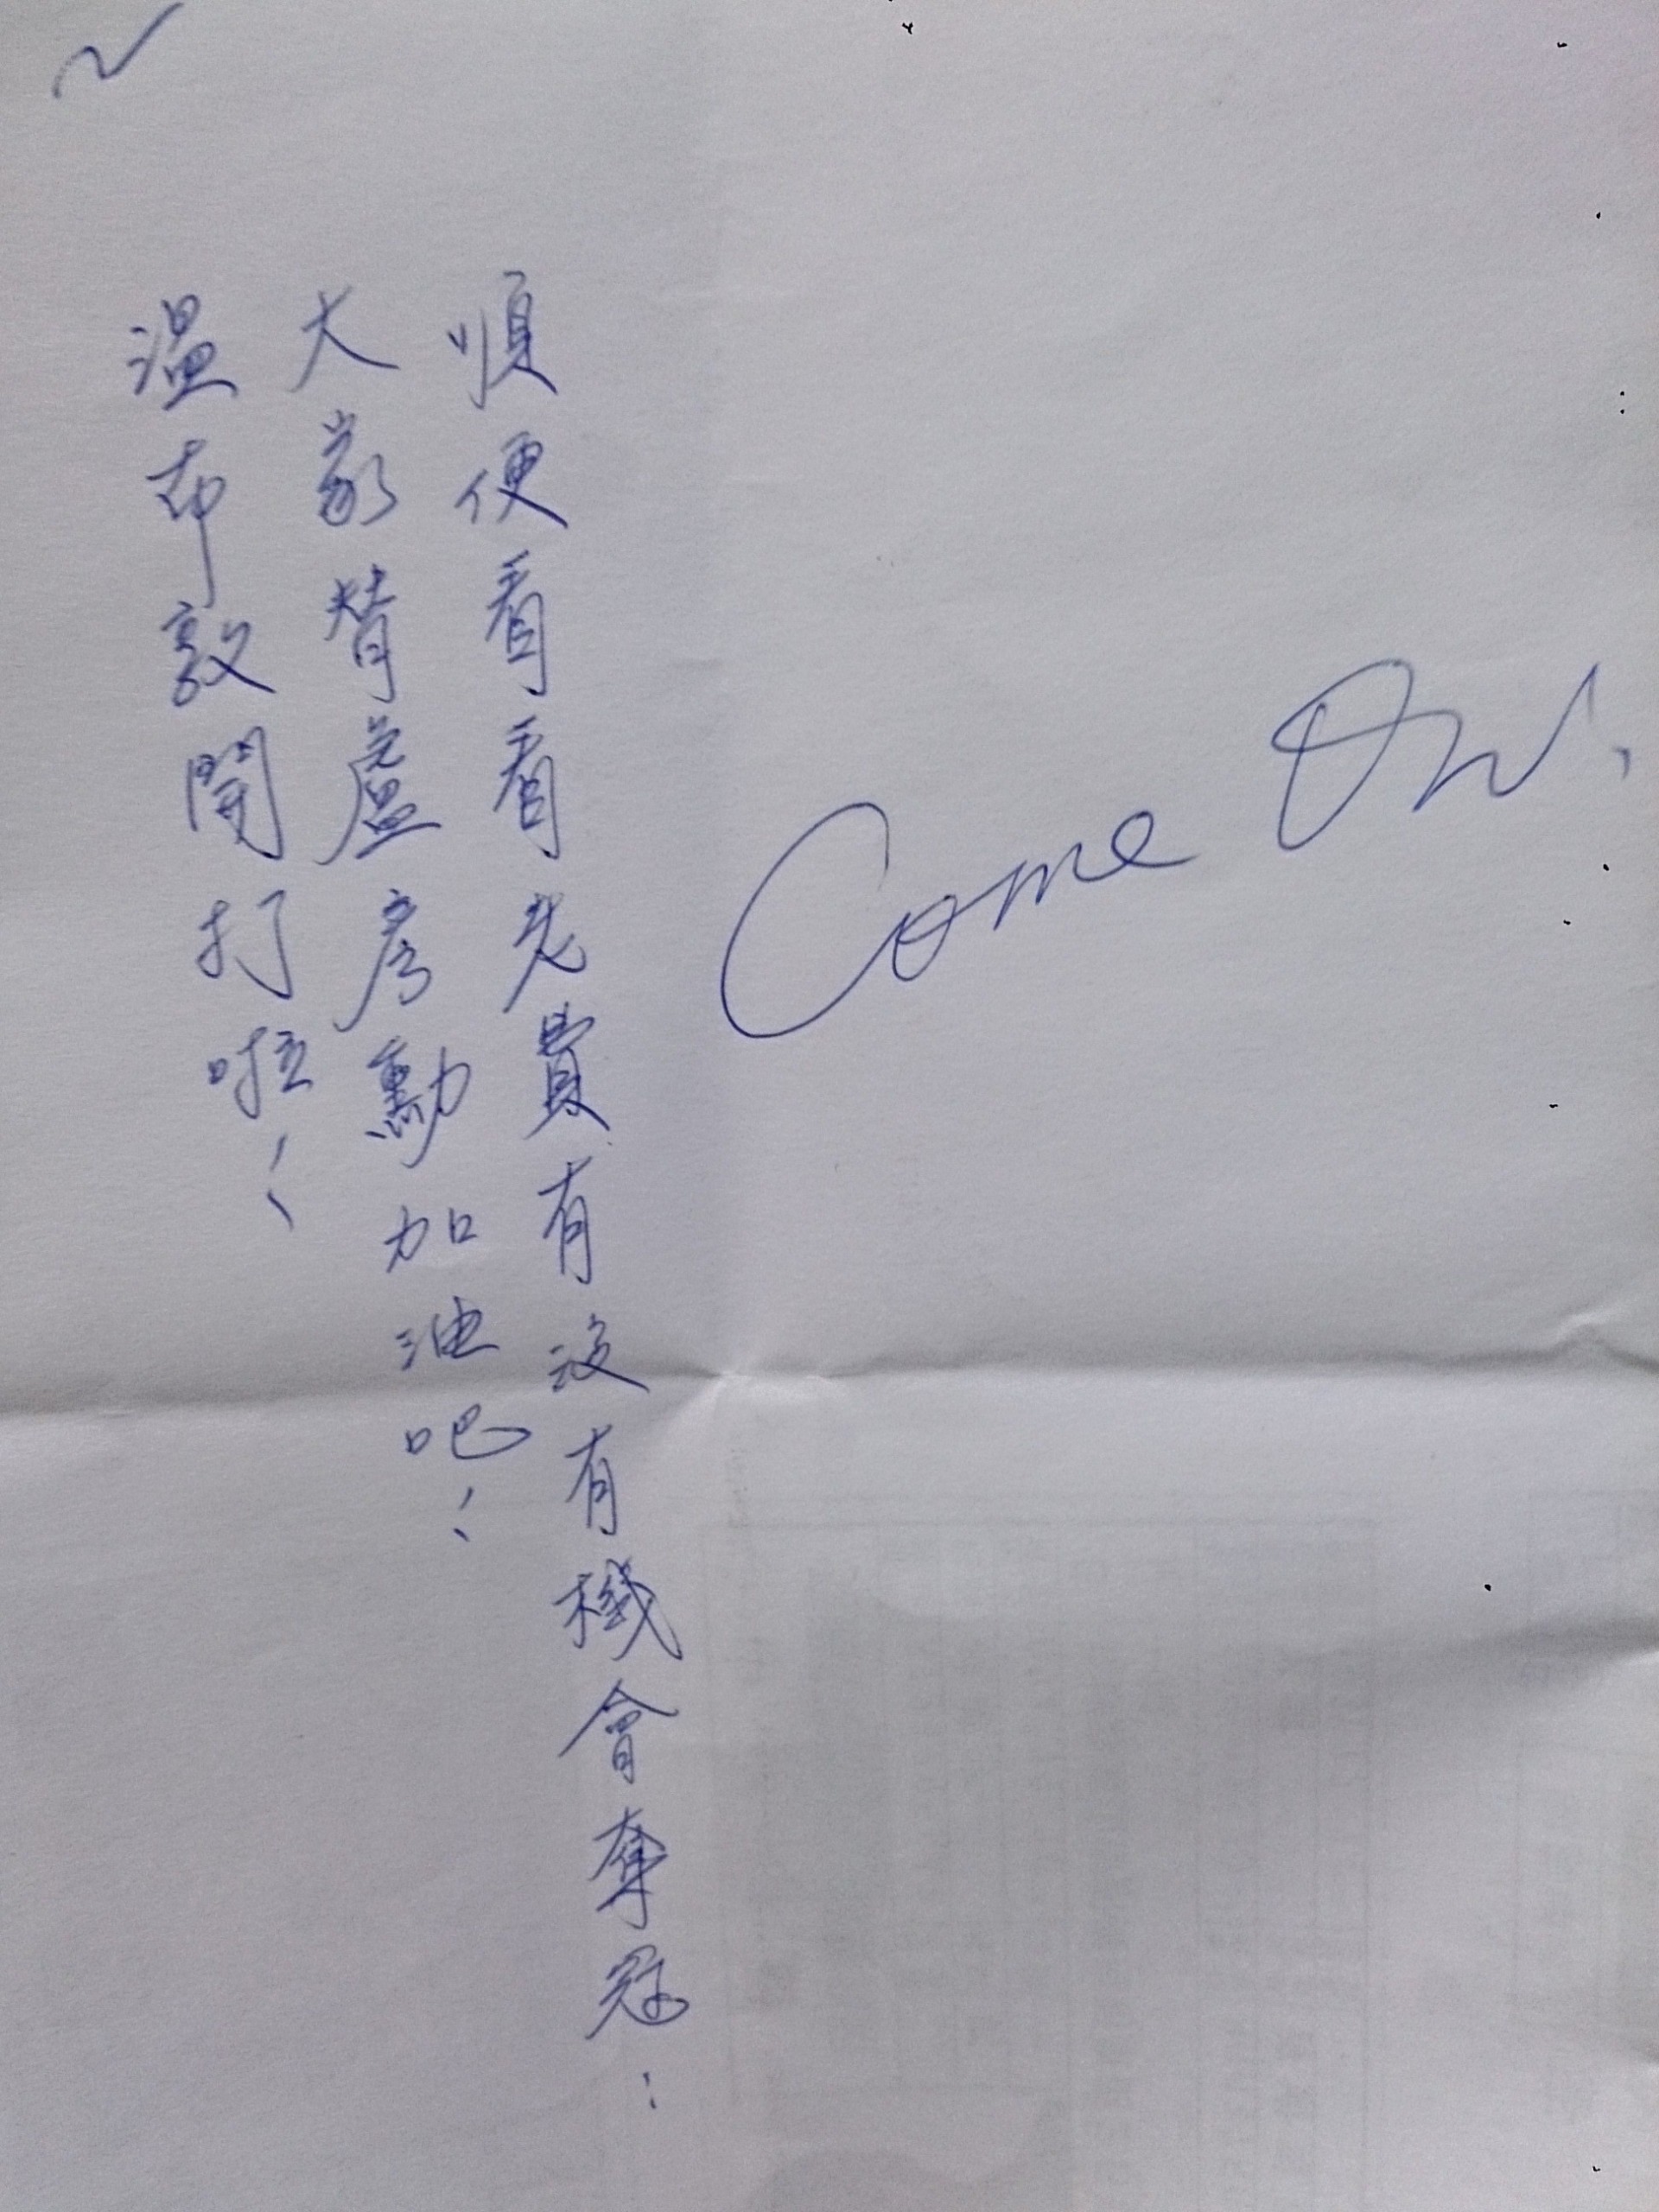 溫布敦開打啦!
大家替盧彥勳加油吧!
順便看看老費有沒有機會奪冠:
Come On!